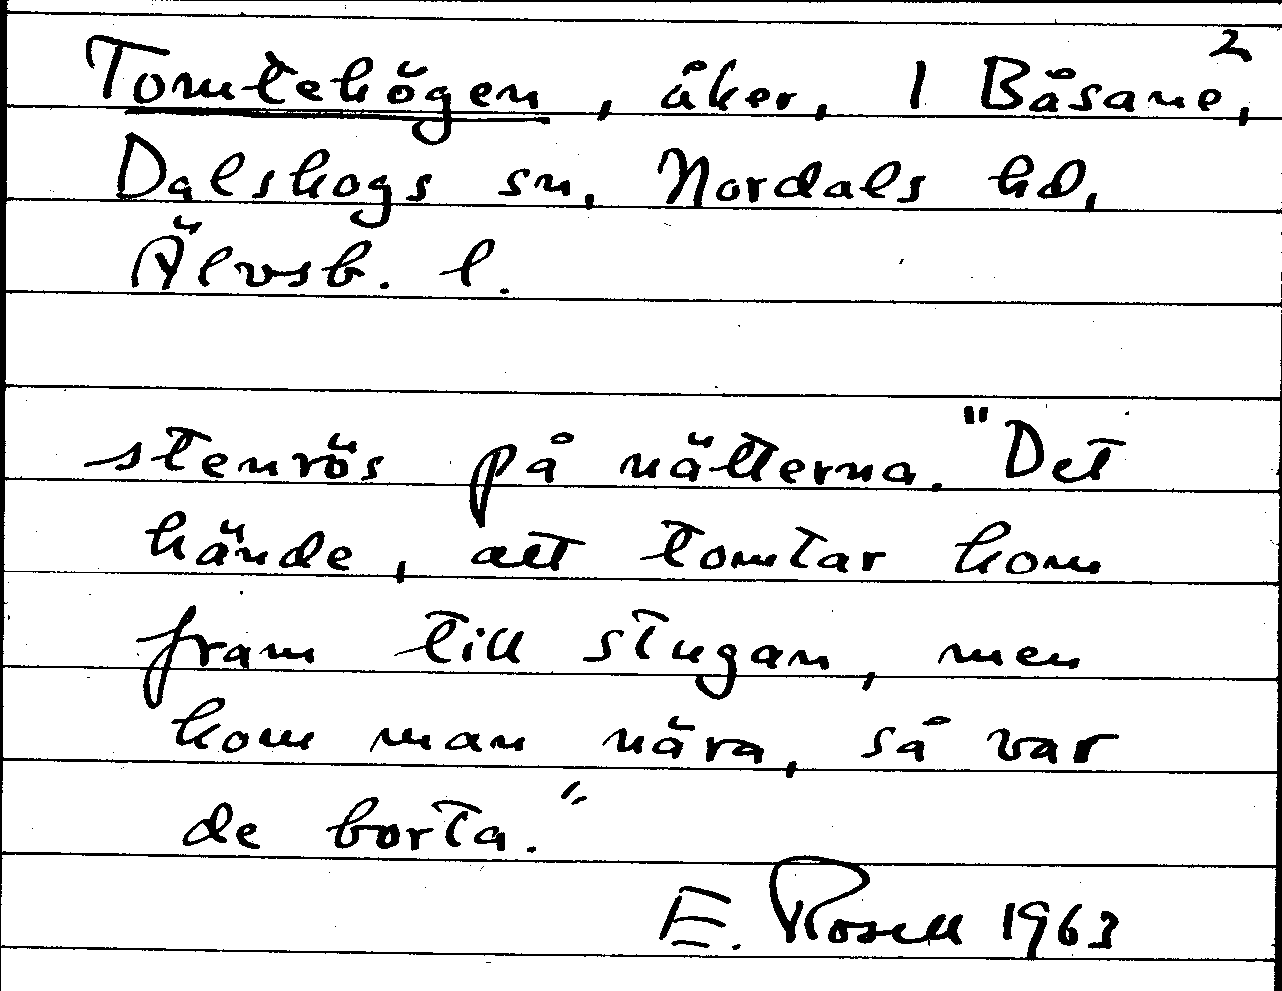 2
Tomtehögen, åker, 1 Båsane,
Dalskogs sn, Nordals hd,
Älvsb. l.
stenrös på nätterna. "Det
hände, att tomtar kom
fram till stugan, men
kom man nära, så var
de borta."
E. Rosell 1963